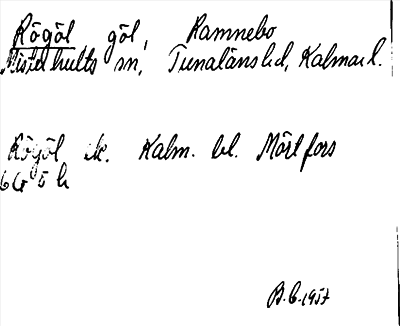 Rögöl göl, Ramnebo
Misterhults sn, Tunaläns hd, Kalmar l.
Rögöl ek. Kalm. bl. Mörtfors
6G 5 h
B.E. 1957